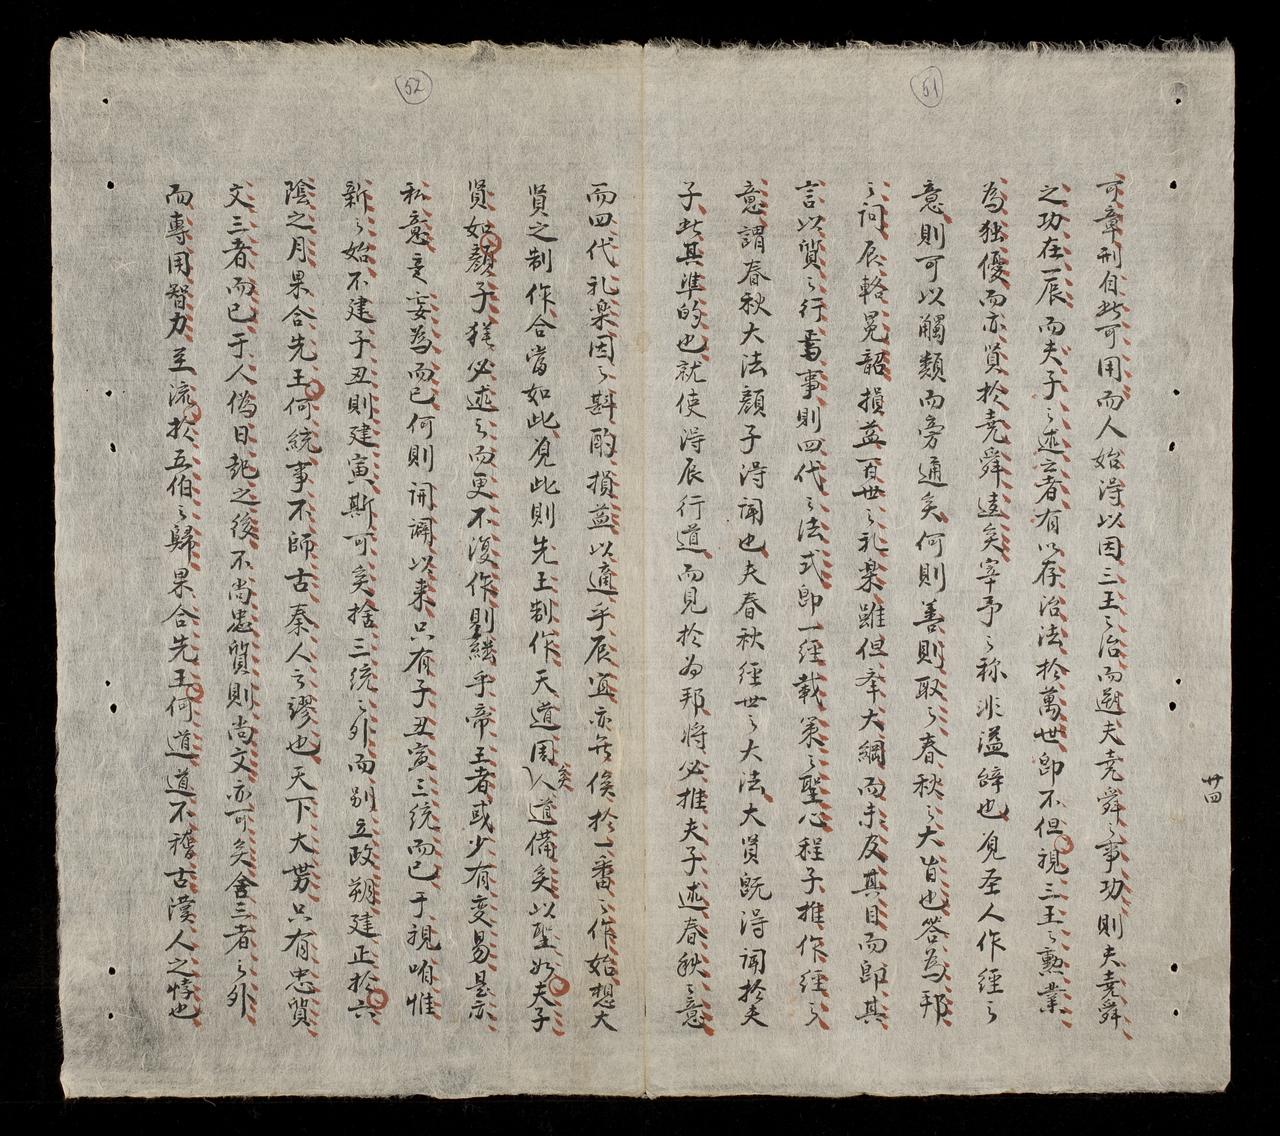 51
52
卅四
可章刑自此可用而人始淂以因三王之治而遡夫堯舜之事功則夫堯舜
之功在一辰而夫子之述云者有以存治法於萬世即不但視三王之勲業
為独優而亦賢於堯舜逺矣宰予之称非溢辞也見圣人作經之
意則可以觸類而旁通矣何則善則取之春秋之大旨也答為邦
之问辰輅冕韶損益百世之礼楽雖但牽大綱而未及其目而即其
言以質之行焉事則四代之法式即一經載筞之聖心程子推作經之
意謂春秋大法顔子淂闻也夫春秋經世之大法大賢既淂闻於夫
子此其準的也就使淂辰行道而見於为邦将必推夫子述春秋之意
而四代礼楽因之斟酌損益以適乎辰宜亦无俟於一番之作始想大
賢之制作合當如此見此則先王制作天道周矣人道備矣以聖如夫子
賢如顔子猶必述之而更不復作則継乎帝王者或少有変易是亦
私意妄為而已何則闭闢以来只有子丑寅三統而已于視咱惟
新之始不建子丑則建寅斯可矣捨三統之外而别立政朔建正於六
陰之月果合先王何統事不師古秦人之謬也天下大势只有忠質
文三者而已于人偽日起之後不尚忠質則尚文亦可矣舍三者之外
而専用智力至流於五伯之歸果合先王何道道不稽古漢人之悖也